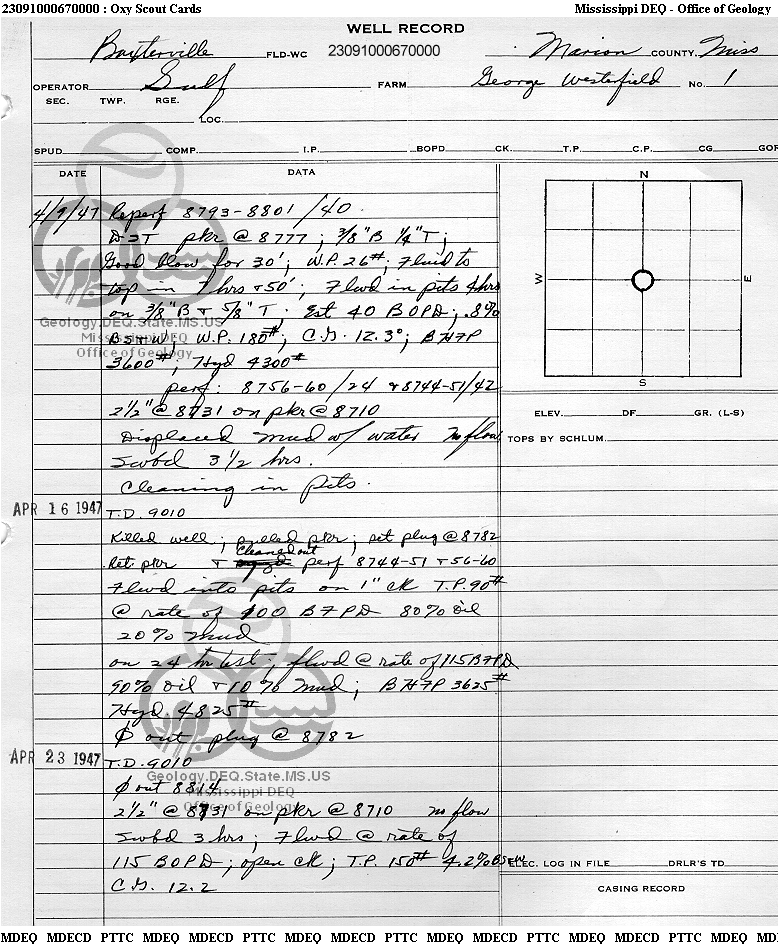 23091000670000 : Oxy Scout Cards Mississippi DEQ - Office of Geology
WELL RECORD
Baxterville FLD-WC 23091000670000 Marion COUNTY, Miss
OPERATOR Gulf FARM George Westerfield No. 1
SEC. TWP. RGE.
LOC.
SPUD COMP. I.P. BOPD CK. T.P. C.P. CG GOR
DATE DATA
N
W E
S
4/9/47 Reperf 8793-8801/40.
DST pkr @ 8777; 3/8"B 1/4"T;
Good blow for 30'; W.P. 26#; Fluid to
top in 7 hrs + 50'; Flwd in pits 4 hrs
on 3/8"B + 5/8"T; Est 40 BOPD; .8%
BS+W; W.P. 180#; C.G. 12.3°; BHFP
3600#; Hyd 4300#
perf: 8756-60/24 + 8744-51/42
2 1/2" @ 8731 on pkr @ 8710
Displaced mud w/ water no flow
Swbd 3 1/2 hrs.
Cleaning in pits.
ELEV. DF GR. (L-S)
TOPS BY SCHLUM.
APR 16 1947 T.D. 9010
Killed well; pulled pkr; set plug @ 8782
Ret. pkr + Cleaned out perf 8744-51 + 56-60
Flwd into pits on 1" ck T.P. 90#
@ rate of 100 BFPD 80% oil
20% mud
on 24 hr test; flwd @ rate of 115 BFPD
90% oil + 10% mud; BHFP 3625#
Hyd 4825#
Ø out plug @ 8782
APR 23 1947 T.D. 9010
Ø out 8814
2 1/2" @ 8731 on pkr @ 8710 no flow
Swbd 3 hrs; Flwd @ rate of
115 BOPD; open ck; T.P. 150# 4.2% BS+W
C.G. 12.2
ELEC. LOG IN FILE DRLR'S TD
CASING RECORD
Geology.DEQ.State.MS.US
Mississippi DEQ
Office of Geology
Geology.DEQ.State.MS.US
Mississippi DEQ
Office of Geology
MDEQ MDECD PTTC MDEQ MDECD PTTC MDEQ MDECD PTTC MDEQ MDECD PTTC MDEQ MD